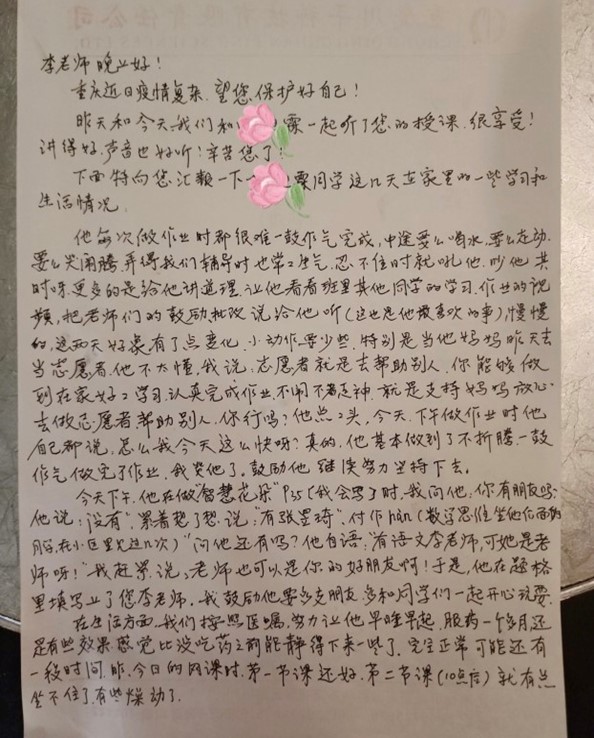 李老师晚上好！
重庆近日疫情复杂，望您保护好自己！
昨天和今天，我们和 栗一起听了您的授课，很享受！
讲得好，声音也好听！辛苦您了！
下面特向您汇报一下 栗同学这几天在家里的一些学习和
生活情况。
他每次做作业时都很难一鼓作气完成，中途要么喝水，要么走动，
要么哭闹腾，弄得我们辅导时也常常生气，忍不住时就吼他，吵他，其
时呀，更多的是给他讲道理，让他看看班里其他同学的学习、作业的视
频，把老师们的鼓励批改说给他听（这也是他最喜欢的事），慢慢
的，这两天好象有了点变化，小动作要少些，特别是当他妈妈昨天去
当志愿者，他不太懂，我说，志愿者就是去帮助别人，你能够做
到在家好好学习，认真完成作业，不闹不走神，就是支持妈妈放心
去做志愿者，帮助别人，你行吗？他点点头，今天下午做作业时他
自己都说，怎么我今天这么快呀？真的，他基本做到了不折腾一鼓
作气做完了作业，我奖他了。鼓励他继续努力坚持下去。
今天下午，他在做"智慧花朵"P55（我会写了时，我问他：你有朋友吗？
他说："没有"，紧着想了想，说："有张昱琦"、付作hàn（数学思维坐他后面的
同学，在小区里见过几次）"问他还有吗？他自语："有语文李老师，可她是老
师呀！"我赶紧说，老师也可以是你的好朋友啊！于是，他在题格
里填写上了您李老师。我鼓励他要多交朋友，多和同学们一起开心玩耍。
在生活方面，我们按照医嘱，努力让他早睡早起，服药一个多月还
是有些效果，感觉比没吃药之前能静得下来一些了，完全正常可能还有
一段时间。昨、今日的网课时，第一节课还好，第二节课（10点后）就有点
坐不住了，有些燥动了。